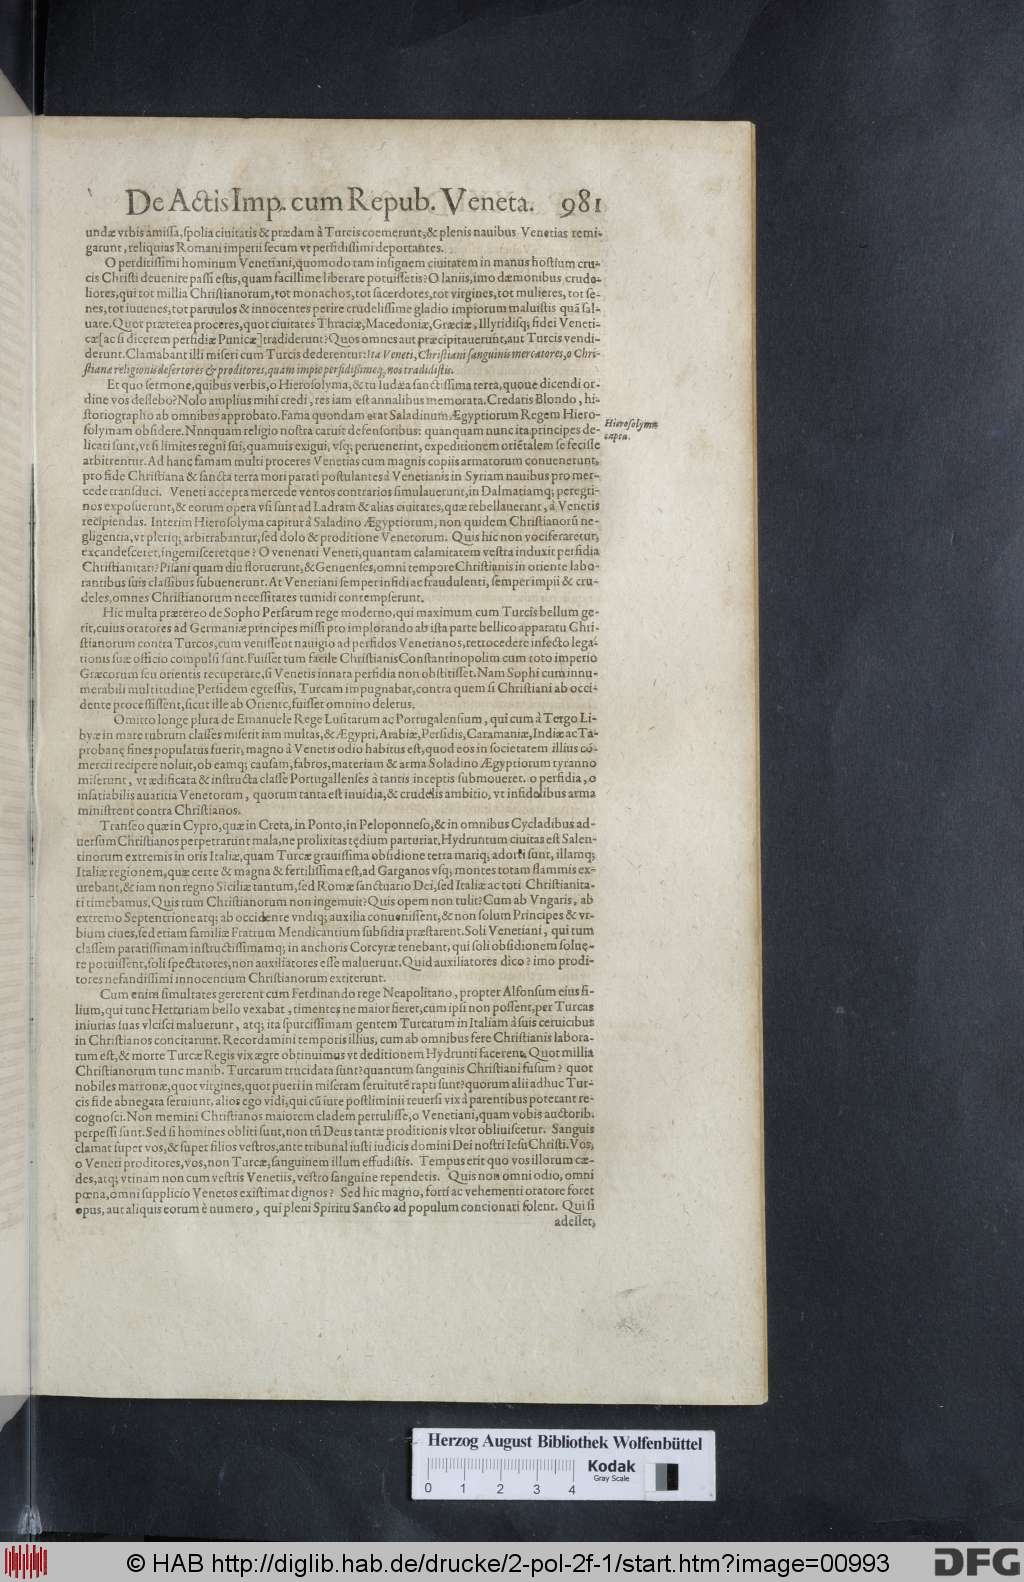 De Actis Imp. cum Repub. Veneta. 981
undæ vrbis amissa, spolia ciuitatis & prædam à Turcis coemerunt, & plenis nauibus Venetias remi-
garunt, reliquias Romani imperii secum vt perfidissimi deportantes.
O perditissimi hominum Venetiani, quomodo tam insignem ciuitatem in manus hostium cru-
cis Christi deuenire passi estis, quam facillime liberare potuissetis? O laniis, imo dæmonibus crude-
liores, qui tot millia Christianorum, tot monachos, tot sacerdotes, tot virgines, tot mulieres, tot se-
nes, tot iuuenes, tot paruulos & innocentes perire crudelissime gladio impiorum maluistis quā sal-
uare. Quot præterea proceres, quot ciuitates Thraciæ, Macedoniæ, Græciæ, Illyridisq; fidei Veneti-
cæ [ac si dicerem perfidiæ Punicæ] tradiderunt? Quos omnes aut præcipitauerunt, aut Turcis vendi-
derunt. Clamabant illi miseri cum Turcis dederentur: Ita Veneti, Christiani sanguinis mercatores, o Chri-
stianæ religionis desertores & proditores, quam impie perfidissimeq, nos tradidistis.
Et quo sermone, quibus verbis, o Hierosolyma, & tu Iudæa sanctissima terra, quoue dicendi or-
dine vos deflebo? Nolo amplius mihi credi, res iam est annalibus memorata. Credatis Blondo, hi-
storiographo ab omnibus approbato. Fama quondam erat Saladinum Ægyptiorum Regem Hiero-
solymam obsidere. Nnnquam religio nostra caruit defensoribus: quanquam nunc ita principes de-
licati sunt, vt si limites regni sui, quamuis exigui, vsq; peruenerint, expeditionem oriētalem se fecisse
arbitrentur. Ad hanc famam multi proceres Venetias cum magnis copiis armatorum conuenerunt,
pro fide Christiana & sancta terra mori parati postulantes à Venetianis in Syriam nauibus pro mer-
cede transduci. Veneti accepta mercede ventos contrarios simulauerunt, in Dalmatiamq; peregri-
nos exposuerunt, & eorum opera vsi sunt ad Ladram & alias ciuitates, quæ rebellauerant, à Venetis
recipiendas. Interim Hierosolyma capitur à Saladino Ægyptiorum, non quidem Christianorū ne-
gligentia, vt pleriq; arbitrabantur, sed dolo & proditione Venetorum. Quis hic non vociferaretur,
excandesceret, ingemisceretque? O venenati Veneti, quantam calamitatem vestra induxit perfidia
Christianitati? Pisani quam diu floruerunt, & Genuenses, omni tempore Christianis in oriente labo-
rantibus suis classibus subuenerunt. At Venetiani semper infidi ac fraudulenti, semper impii & cru-
deles, omnes Christianorum necessitates tumidi contempserunt.
Hic multa prætereo de Sopho Persarum rege moderno, qui maximum cum Turcis bellum ge-
rit, cuius oratores ad Germaniæ principes missi pro implorando ab ista parte bellico apparatu Chri-
stianorum contra Turcos, cum venissent nauigio ad perfidos Venetianos, retrocedere infecto lega-
tionis suæ officio compulsi sunt. Fuisset tum facile Christianis Constantinopolim cum toto imperio
Græcorum seu orientis recuperare, si Venetis innata perfidia non obstitisset. Nam Sophi cum innu-
merabili multitudine Persidem egressus, Turcam impugnabat, contra quem si Christiani ab occi-
dente processissent, sicut ille ab Oriente, fuisset omnino deletus.
Omitto longe plura de Emanuele Rege Lusitarum ac Portugalensium, qui cum à Tergo Li-
byæ in mare rubrum classes miserit iam multas, & Ægypti, Arabiæ, Persidis, Caramaniæ, Indiæ ac Ta-
probanę fines populatus fuerit, magno à Venetis odio habitus est, quod eos in societatem illius cō-
mercii recipere noluit, ob eamq; causam, fabros, materiam & arma Soladino Ægyptiorum tyranno
miserunt, vt ædificata & instructa classe Portugallenses à tantis inceptis submoueret. o perfidia, o
insatiabilis auaritia Venetorum, quorum tanta est inuidia, & crudelis ambitio, vt infidelibus arma
ministrent contra Christianos.
Transeo quæ in Cypro, quæ in Creta, in Ponto, in Peloponneso, & in omnibus Cycladibus ad-
uersum Christianos perpetrarunt mala, ne prolixitas tędium parturiat. Hydruntum ciuitas est Salen-
tinorum extremis in oris Italiæ, quam Turcæ grauissima obsidione terra mariq; adorti sunt, illamq;
Italiæ regionem, quæ certe & magna & fertilissima est, ad Garganos vsq; montes totam flammis ex-
urebant, & iam non regno Siciliæ tantum, sed Romæ sanctuario Dei, sed Italiæ ac toti Christianita-
ti timebamus. Quis tum Christianorum non ingemuit? Quis opem non tulit? Cum ab Vngaris, ab
extremo Septentrione atq; ab occidente vndiq; auxilia conuenissent, & non solum Principes & vr-
bium ciues, sed etiam familiæ Fratrum Mendicantium subsidia præstarent. Soli Venetiani, qui tum
classem paratissimam instructissimamq; in anchoris Corcyræ tenebant, qui soli obsidionem soluę-
re potuissent, soli spectatores, non auxiliatores esse maluerunt. Quid auxiliatores dico? imo prodi-
tores nefandissimi innocentium Christianorum extiterunt.
Cum enim simultates gererent cum Ferdinando rege Neapolitano, propter Alfonsum eius fi-
lium, qui tunc Hetruriam bello vexabat, timentes ne maior fieret, cum ipsi non possent, per Turcas
iniurias suas vlcisci maluerunt, atq; ita spurcissimam gentem Turcarum in Italiam à suis ceruicibus
in Christianos concitarunt. Recordamini temporis illius, cum ab omnibus fere Christianis labora-
tum est, & morte Turcæ Regis vix ægre obtinuimus vt deditionem Hydrunti facerent. Quot millia
Christianorum tunc manib. Turcarum trucidata sunt? quantum sanguinis Christiani fusum? quot
nobiles matronæ, quot virgines, quot pueri in miseram seruitutē rapti sunt? quorum alii adhuc Tur-
cis fide abnegata seruiunt, alios ego vidi, qui cū iure postliminii reuersi vix à parentibus poterant re-
cognosci. Non memini Christianos maiorem cladem pertulisse, o Venetiani, quam vobis auctorib.
perpessi sunt. Sed si homines obliti sunt, non tñ Deus tantæ proditionis vltor obliuiscetur. Sanguis
clamat super vos, & super filios vestros, ante tribunal iusti iudicis domini Dei nostri Iesu Christi. Vos,
o Veneti proditores, vos, non Turcæ, sanguinem illum effudistis. Tempus erit quo vos illorum cæ-
des, atq; vtinam non cum vestris Venetiis, vestro sanguine rependetis. Quis non omni odio, omni
pœna, omni supplicio Venetos existimat dignos? Sed hic magno, forti ac vehementi oratore foret
opus, aut aliquis eorum è numero, qui pleni Spiritu Sancto ad populum concionati solent. Qui si
adesset,
Hierosolyma
capta.
Herzog August Bibliothek Wolfenbüttel
Kodak
Gray Scale
0 1 2 3 4
© HAB http://diglib.hab.de/drucke/2-pol-2f-1/start.htm?image=00993
DFG